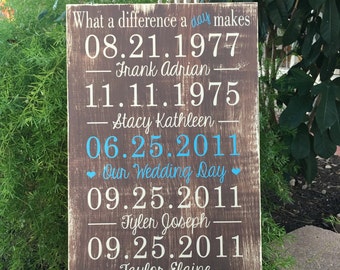 What a difference a day makes
08.21.1977
Frank Adrian
11.11.1975
Stacy Kathleen
06.25.2011
Our Wedding Day
09.25.2011
Tyler Joseph
09.25.2011
Taylor Elaine